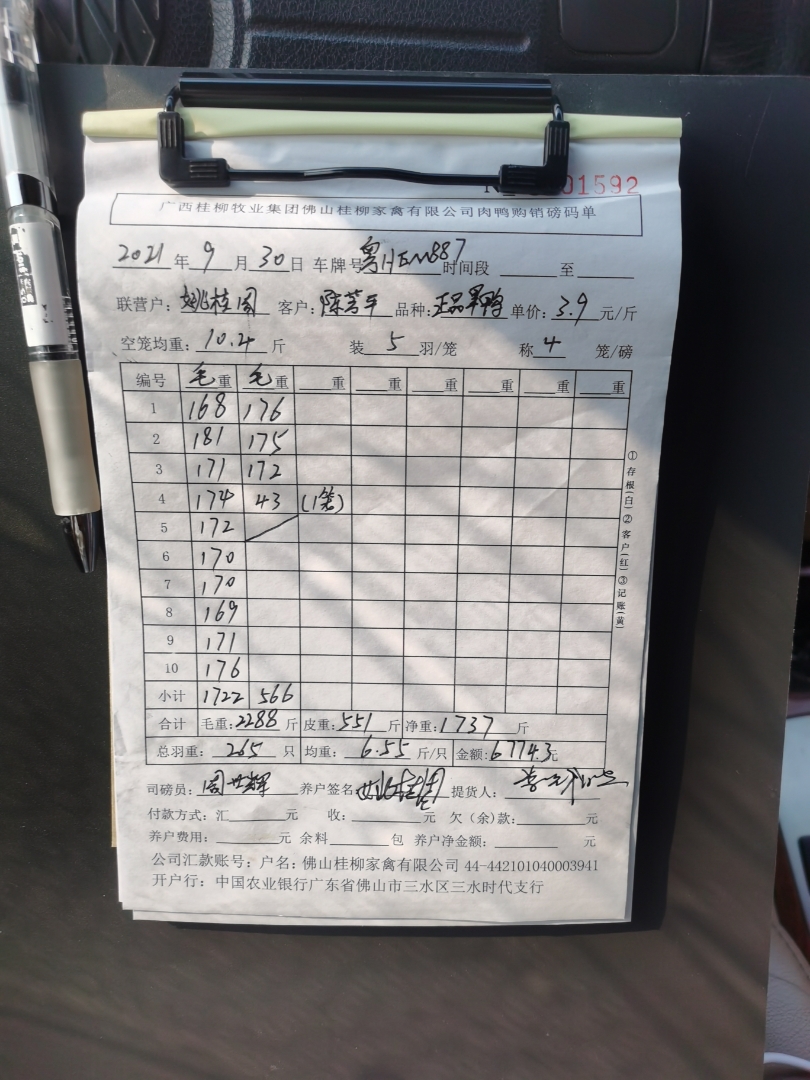 01592
广西桂柳牧业集团佛山桂柳家禽有限公司肉鸭购销磅码单
2021年9月30日 车牌号 粤HEM887 时间段 至
联营户: 姚桂园 客户: 陈芳平 品种: 正品单鸭 单价: 3.9 元/斤
空笼均重: 10.4 斤 装 5 羽/笼 称 4 笼/磅
编号 毛重 毛重 重 重 重 重 重 重
1 168 176
2 181 175
3 171 172
4 174 43 (1笼)
5 172
6 170
7 170
8 169
9 171
10 176
小计 1722 566
合计 毛重: 2288 斤 皮重: 551 斤 净重: 1737 斤
总羽重: 265 只 均重: 6.55 斤/只 金额: 6774.3元
司磅员: 周世辉 养户签名: 姚桂园 提货人:
付款方式: 汇 元 收: 元 欠(余)款: 元
养户费用: 元 余料 包 养户净金额: 元
公司汇款账号: 户名: 佛山桂柳家禽有限公司 44-442101040003941
开户行: 中国农业银行广东省佛山市三水区三水时代支行
①存根(白)②客户(红)③记账(黄)